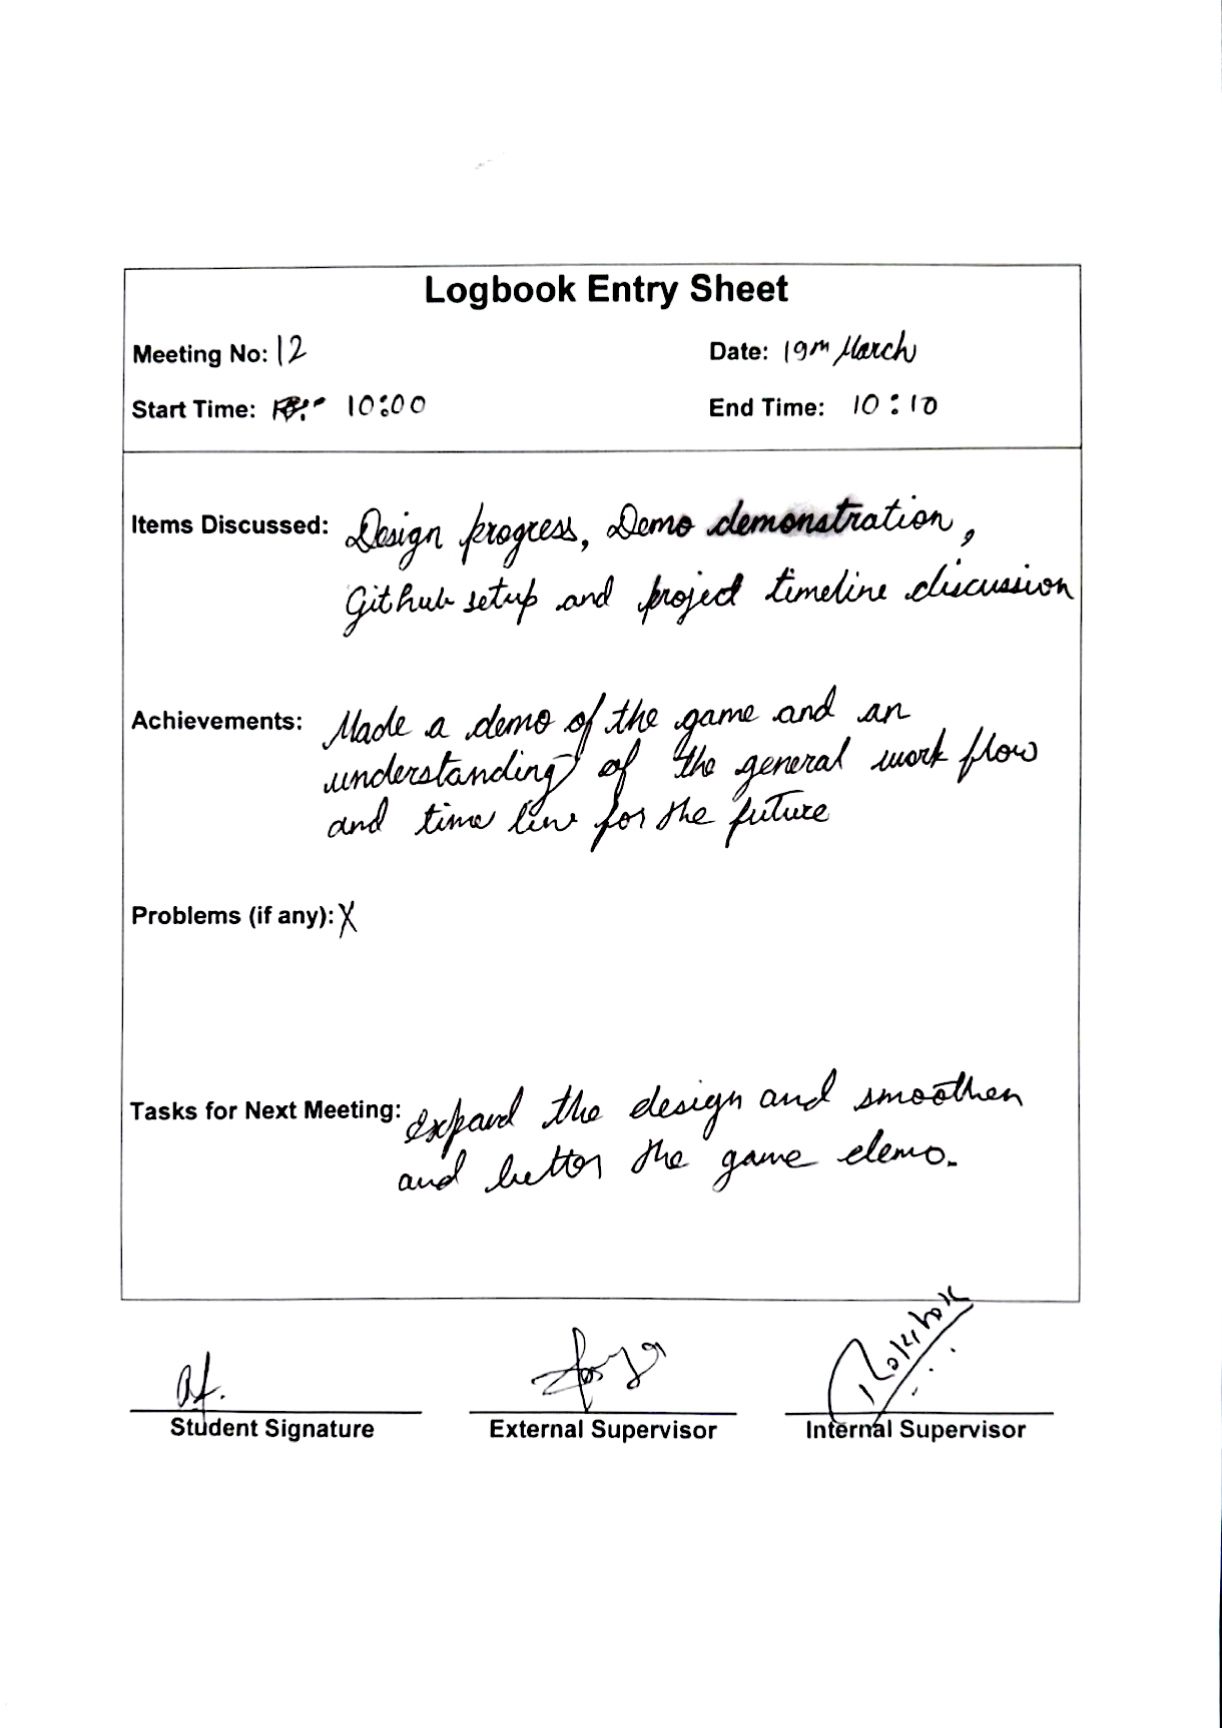 Logbook Entry Sheet
Meeting No: 12
Date: 19th March
Start Time: 10:00
End Time: 10:10
Items Discussed: Design progress, Demo demonstration,
Github setup and project timeline discussion
Achievements: Made a demo of the game and an
understanding of the general work flow
and time line for the future
Problems (if any): X
Tasks for Next Meeting: expand the design and smoothen
and better the game demo.
Student Signature
External Supervisor
Internal Supervisor